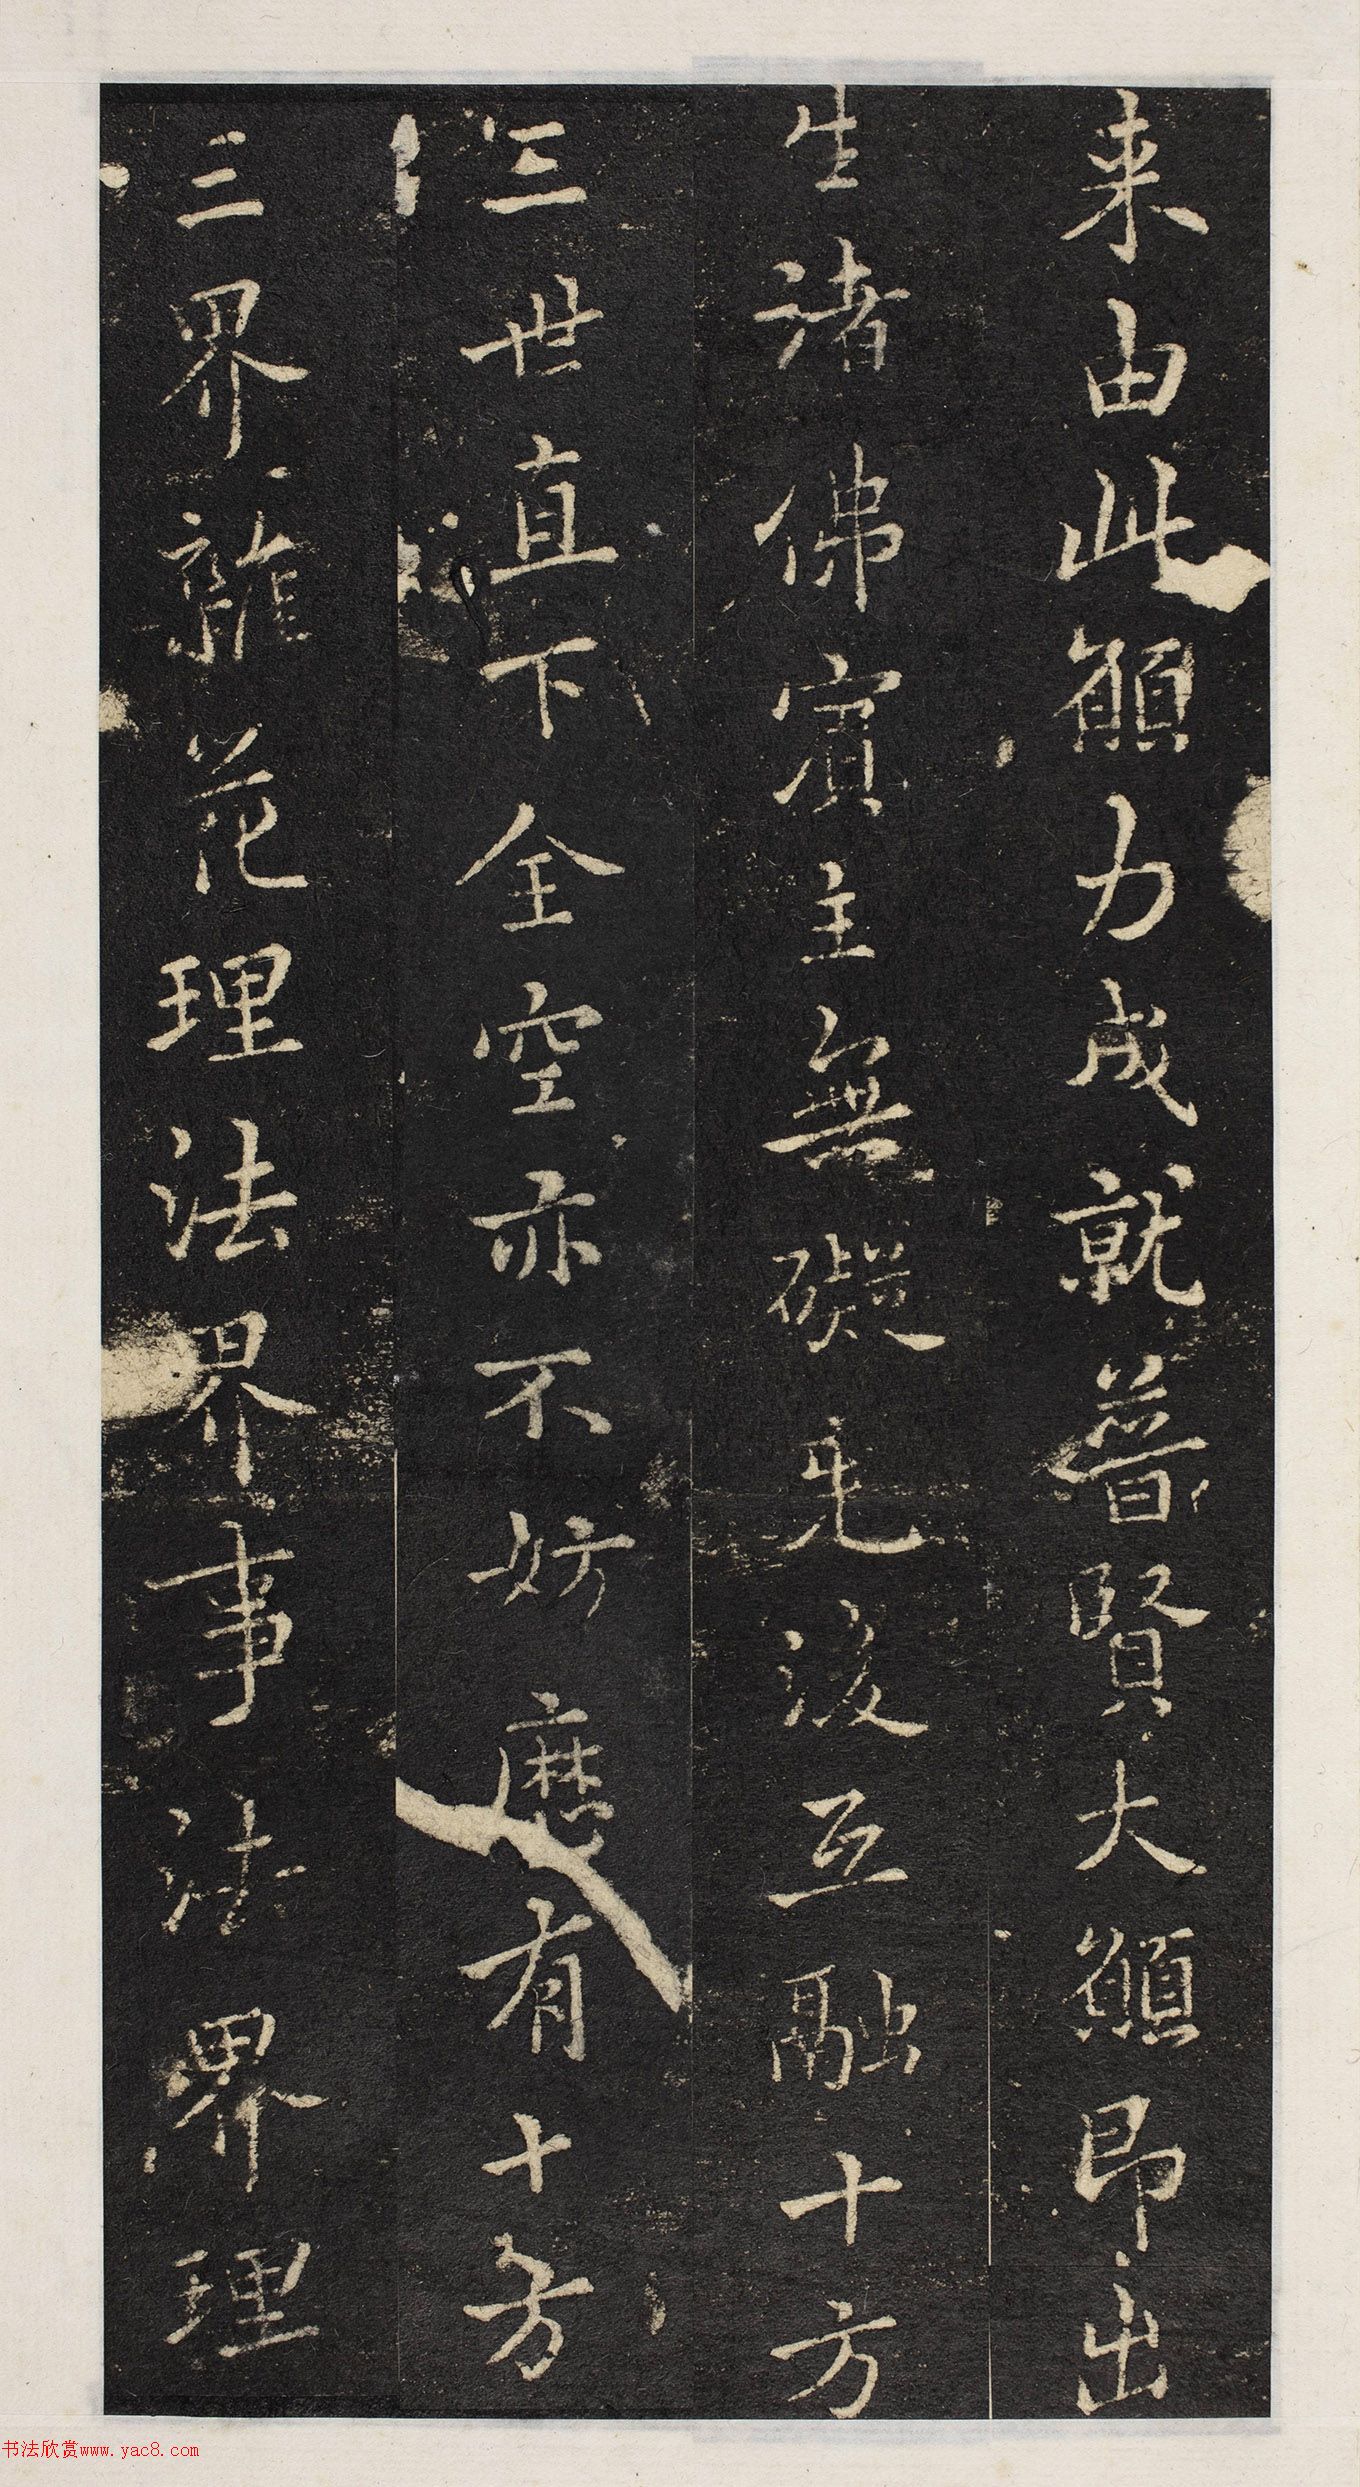 来由此願力成就普賢大願即出
生諸佛賓主無礙先後互融十方
三世直下全空亦不妨應有十方
三界雜花理法界事法界理
书法欣赏www.yac8.com